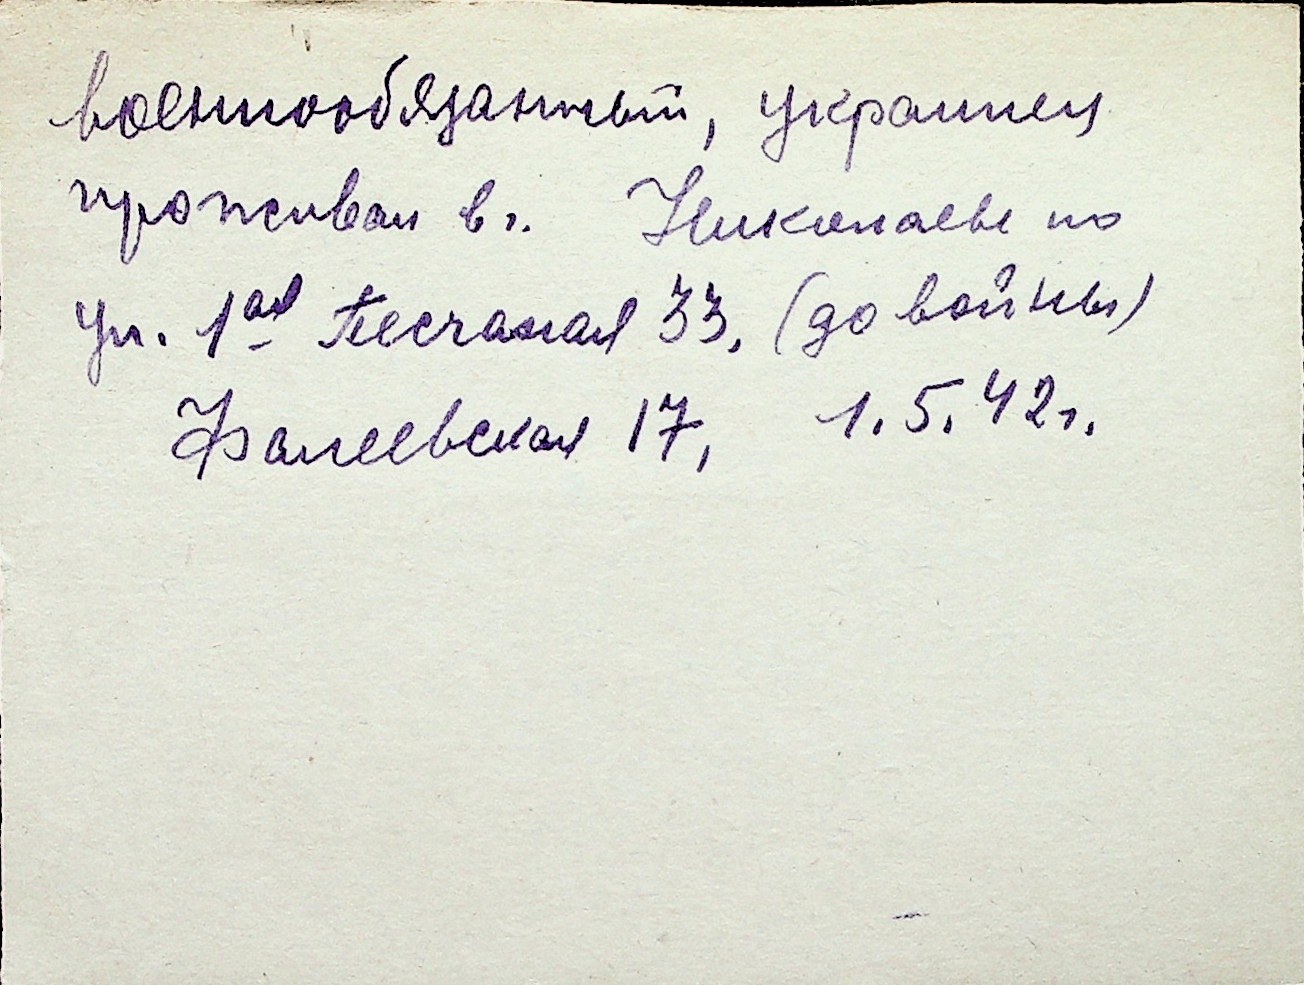 военнообязанный, украинец
проживал в г. Николаеве по
ул. 1ая Песчаная 33, (до войны)
Фалеевская 17, 1.5.42г.